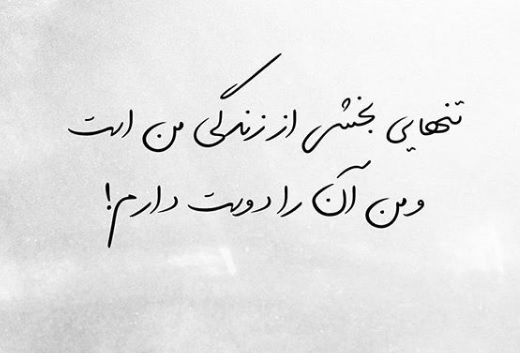 تنهایی بخشی از زندگی من است
و من آن را دوست دارم!